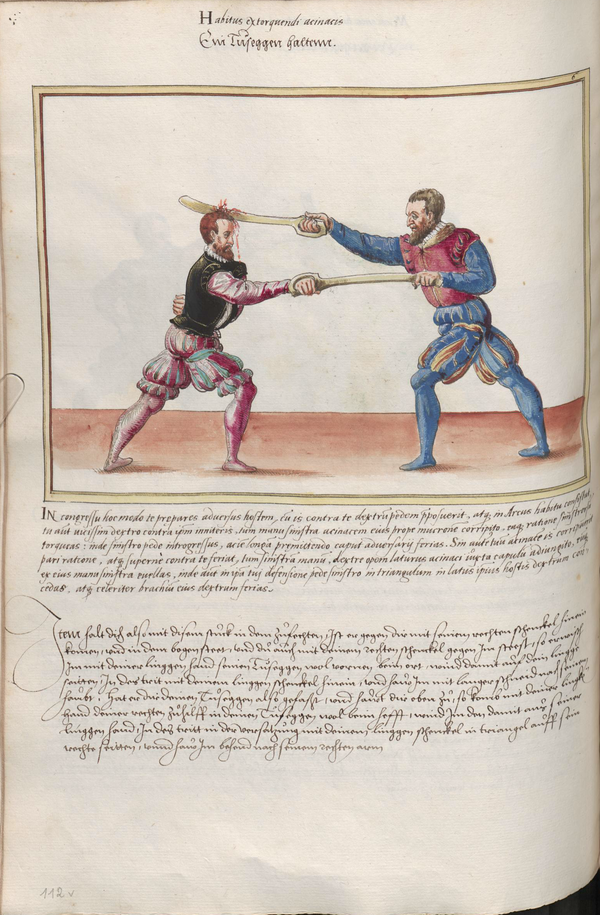 Habitus extorquendi acinacis
Ein Tuseggen haltenn.
6
IN congressu hoc modo te prepares adversus hostem, Cu is contra te dextru pedem pposuerit, atq in Arcus habitu consistat,
tu aut vicissim dextro contra ipm inniteris. tum manu sinistra acinacem eius prope mucrone corripito. eaq ratione sinistrorsu
torqueas: inde sinistro pede introgressus, acie longa premittendo caput adversarij ferias. Sin autē tuū acinace is corripuerit
pari ratione, atq superne contra te feriat, tum sinistra manu, dextre opem laturus acinaci iuxta capulū adiungito, eūq
ex eius manu sinistra evellas, inde aūt in ipa tui defensione pede sinistro in triangulum in latus ipius hostis dextrum con
cedas, atq celeriter brachiū eius dextrum ferias.
Item halt dich also mit disem stuck in dem zufechten, Ist er gegen dir mit seinem rechten schenckel hinein
komen, und in dem bogen steet, und du auch mit deinem rechten schenckel gegen Im steest, so erwisch
im mit deiner linggen hand seinen Tuseggen wol vornen beim ort, und wind damit auf dein lingge
seiten, In des trit mit deinem linggen schenckel hinein, und haw Im mit langer schneid nach seinem
haubt: Hat er dir deinen Tuseggen also gefasst, und hawt dir oben zu, so komb mit deiner lingken
hand deiner rechten zuhilff in deinen Tuseggen wol beim hefft, unnd Im den damit aus seiner
linggen hand, In des tritt in der versatzung mit deinem linggen schenckel in triangel auff sein
rechte seitten, unnd haw Im behend nach seinem rechten arm
112 v